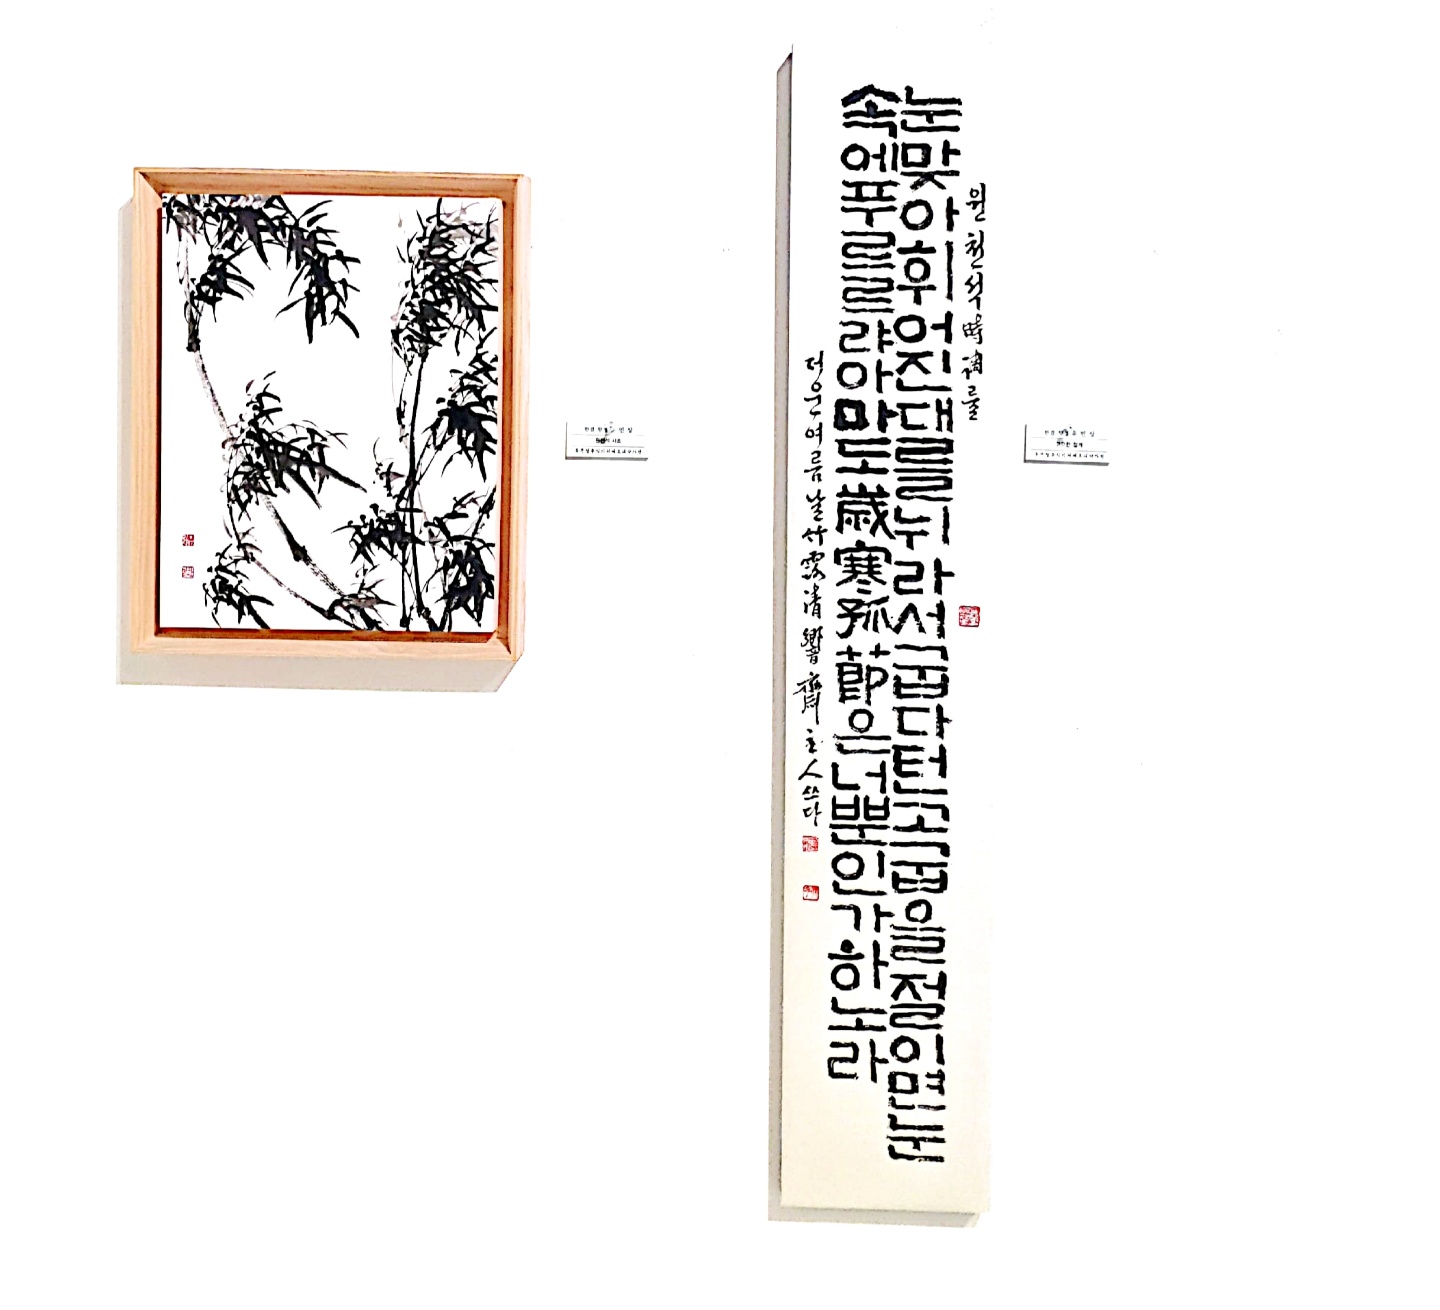 원천석時調를
눈맞아휘어진대를뉘라서굽다턴고굽을절이면눈
속에푸르르랴아마도歲寒孤節은너뿐인가하노라
더운여름날竹露清響齋主人쓰다